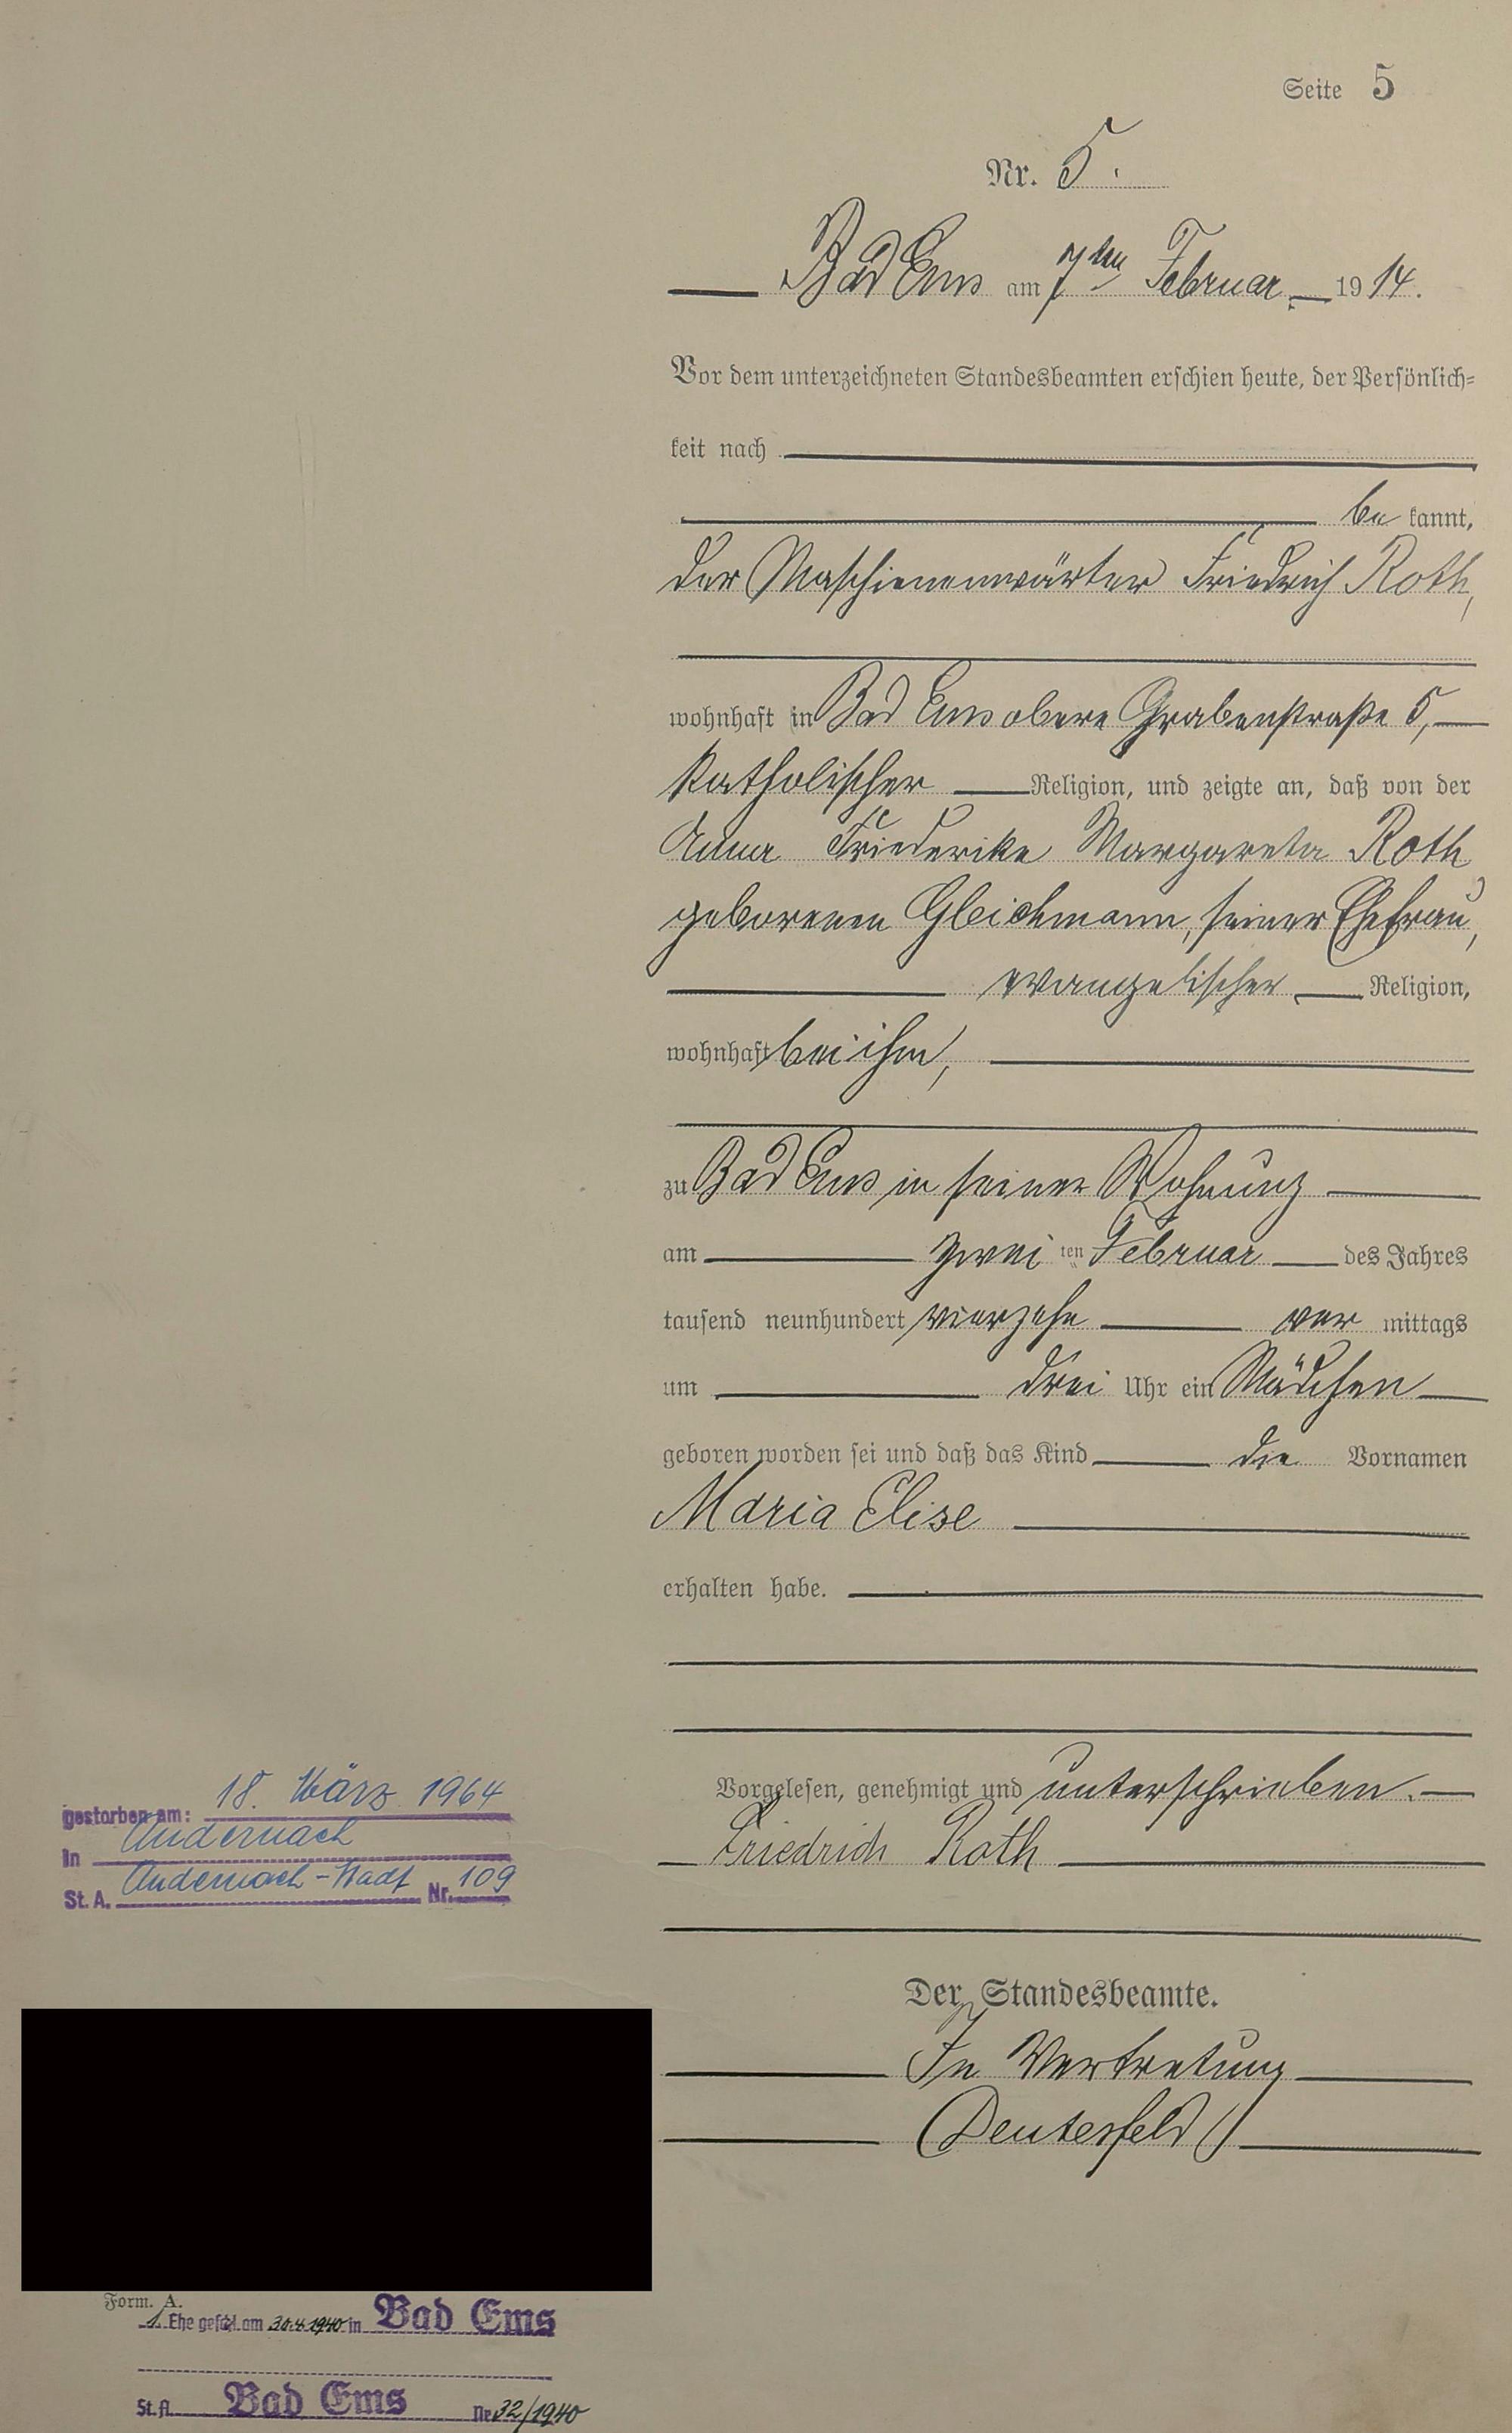 Seite 5
Nr. 5.
Bad Ems am 7ten Februar 1914.
Vor dem unterzeichneten Standesbeamten erschien heute, der Persönlich=
keit nach
be kannt,
der Maschienenwärter Friedrich Roth,
wohnhaft in Bad Ems obere Grabenstraße 5,
katholischer Religion, und zeigte an, daß von der
Anna Friederike Margareta Roth
geborenen Gleichmann, seiner Ehefrau,
evangelischer Religion,
wohnhaft bei ihm,
zu Bad Ems in seiner Wohnung
am zwei ten Februar des Jahres
tausend neunhundert vierzehn vor mittags
um drei Uhr ein Mädchen
geboren worden sei und daß das Kind die Vornamen
Maria Elise
erhalten habe.
Vorgelesen, genehmigt und unterschrieben.
Friedrich Roth
Der Standesbeamte.
In Vertretung
Deutesfeld
gestorben am: 18. März 1964
in Andernach
St. A. Andernach-Stadt Nr. 109
Form. A.
1. Ehe geschl. am 30.4.1940 in Bad Ems
St. A. Bad Ems Nr. 32/1940